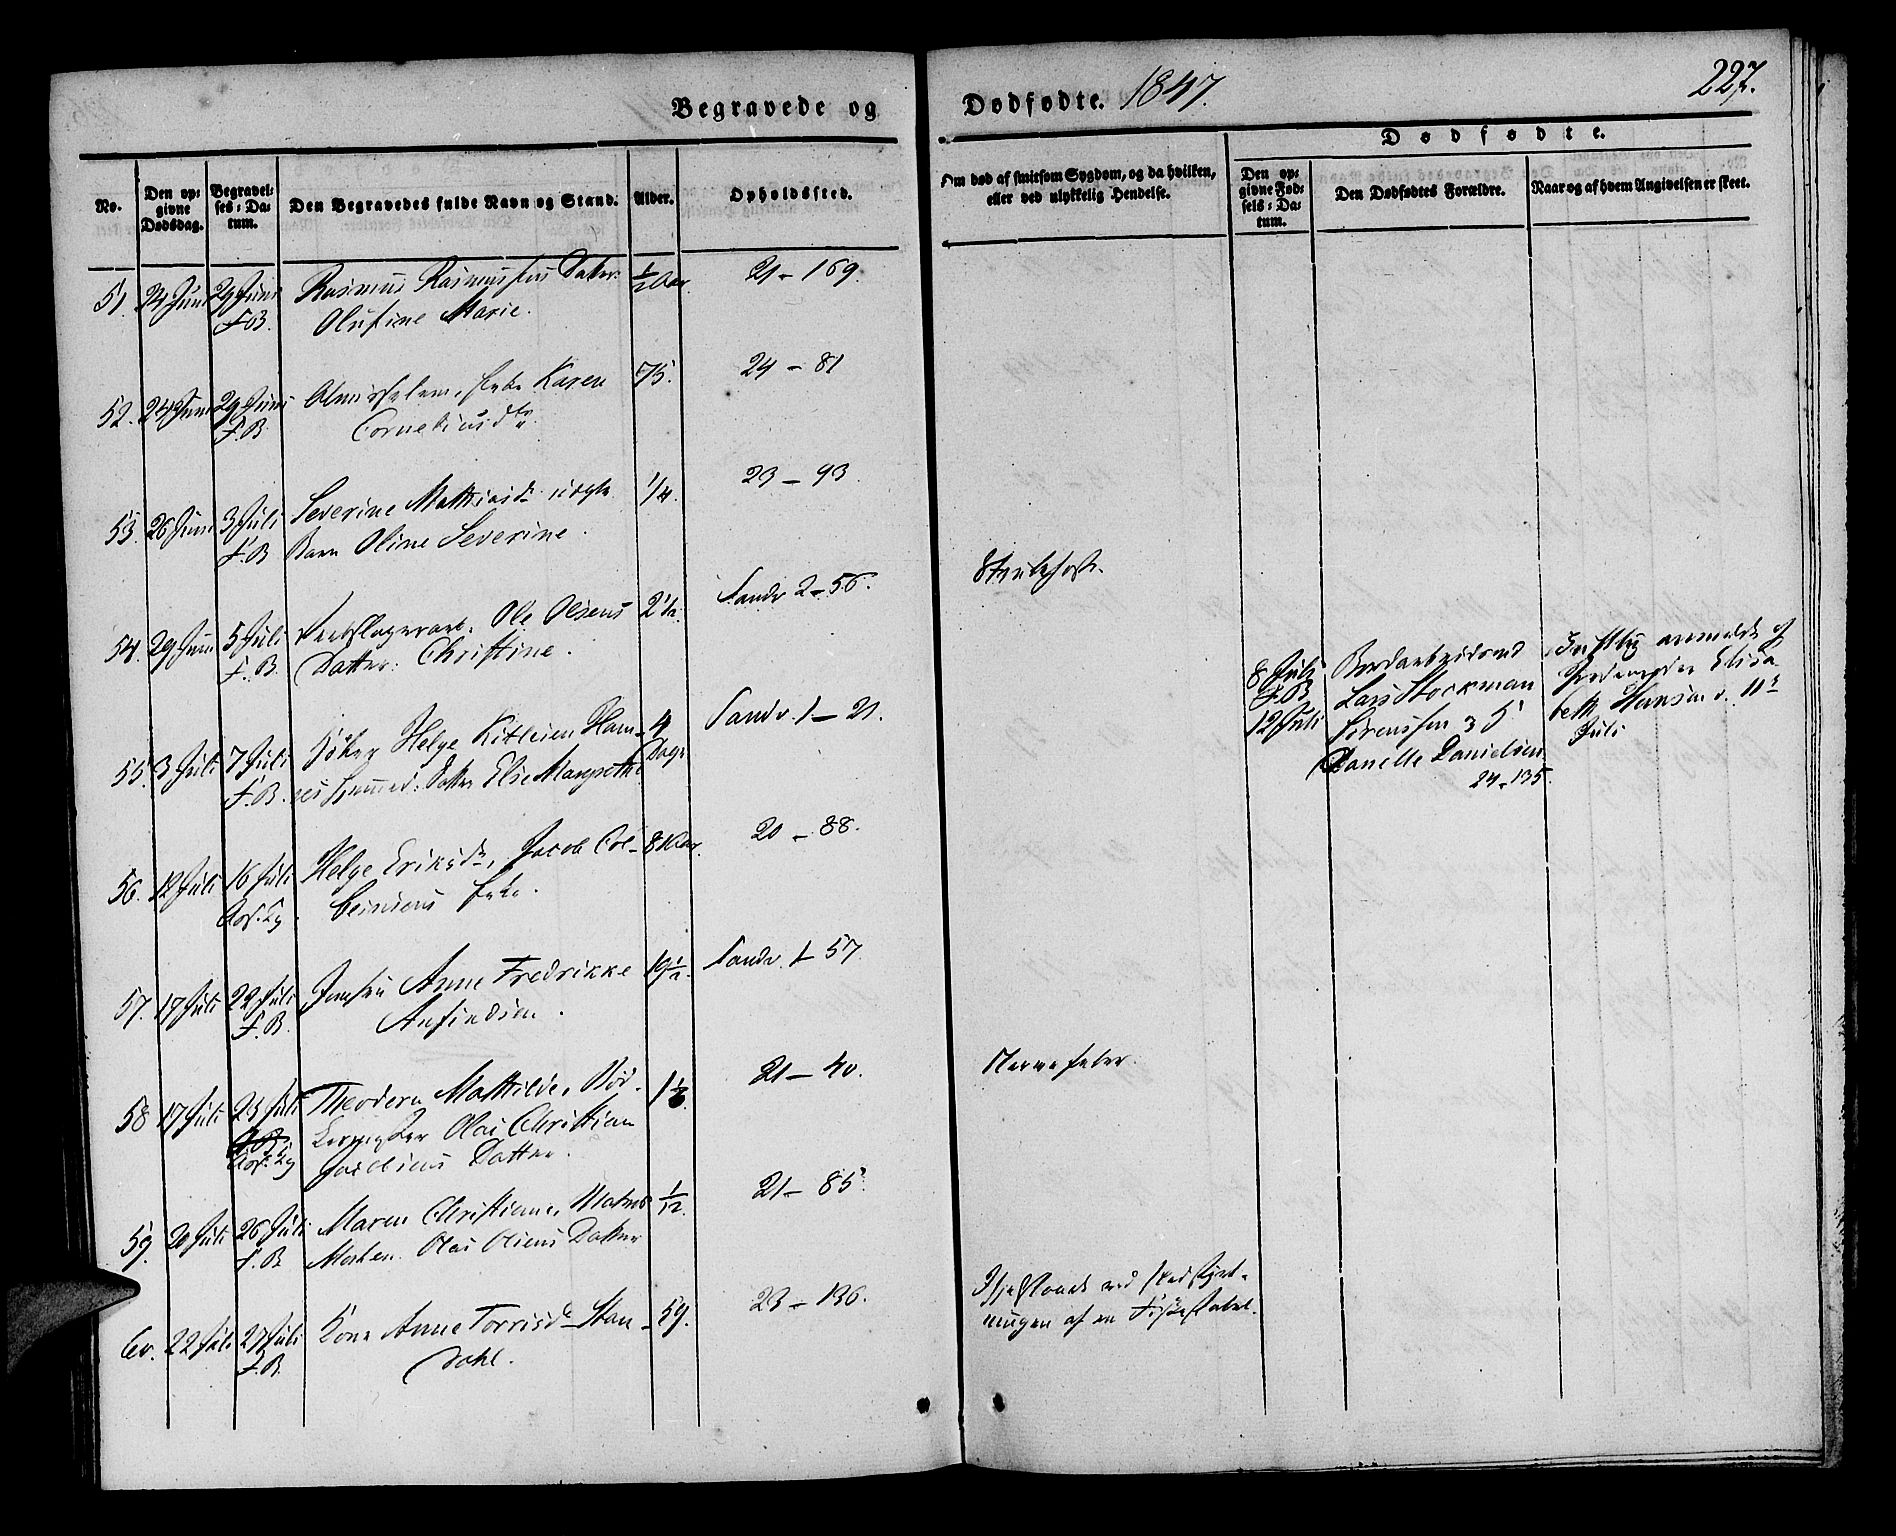 Begravede og
Dødfødte. 1847.
227.
No.
Den op-
givne
Dødsdag.
Begravel-
ses-Da-
tum.
Den Begravedes fulde Navn og Stand.
Alder.
Opholdssted.
Om død af smitsom Sygdom, og da hvilken,
eller ved ulykkelig Hendelse.
Dødfødte.
Den op-
givne Fød-
sels-Da-
tum.
Den Dødfødtes Forældre.
Naar og af hvem Angivelsen er skeet.
51. 24 Juni 29 Juni Rasmus Rasmussens Datter 1/2 Aar. 21 - 169.
F.B. Olufine Marie.
52. 24 Juni 29 Juni Almisselem, Enke Karen 75. 24 - 81
F.B. Corneliusd
53. 26 Juni 3 Juli Severine Matthiasd uægte 1/4. 23 - 93.
F.B Barn Oline Severine.
54. 29 Juni 5 Juli Ole Olsens 2 1/2. Sandv. 2 - 56.
F.B. Datter: Christine.
55. 3 Juli 7 Juli Helge Kitleien Ham- 4 Sandv. 1 - 21.
F.B. Datter Else Margrethe Dage
56. 12 Juli 16 Juli Helge Eriksd, Jacob Col- 20 - 88.
beinsens Enke.
57. 17 Juli 22 Juli Jensen Anne Fredrikke 19 1/2. Sandv. 1 - 57.
F.B.
58 17 Juli 23 Juli Theodora Mathilde, Bød- 21 - 40.
kermester Olai Christian
Datter.
59. 20 Juli 26 Juli Maren Christiane, 1/12. 21 - 85.
F.B Morten Olai Olsens Datter
60. 22 Juli 27 Juli Kone Anne Torrisd Stan- 59. 23 - 136.
F.B. dahl.
Strubehoste.
Nervefeber.
Ihjelslaaet ved
ningen af en
8 Juli
F.B
12 Juli
Lars Stockman
Sørenssen &
Danelle Danielsen
24-135.
anmeldt af
Jordemoder Elisa-
beth Hansen d. 11
Juli